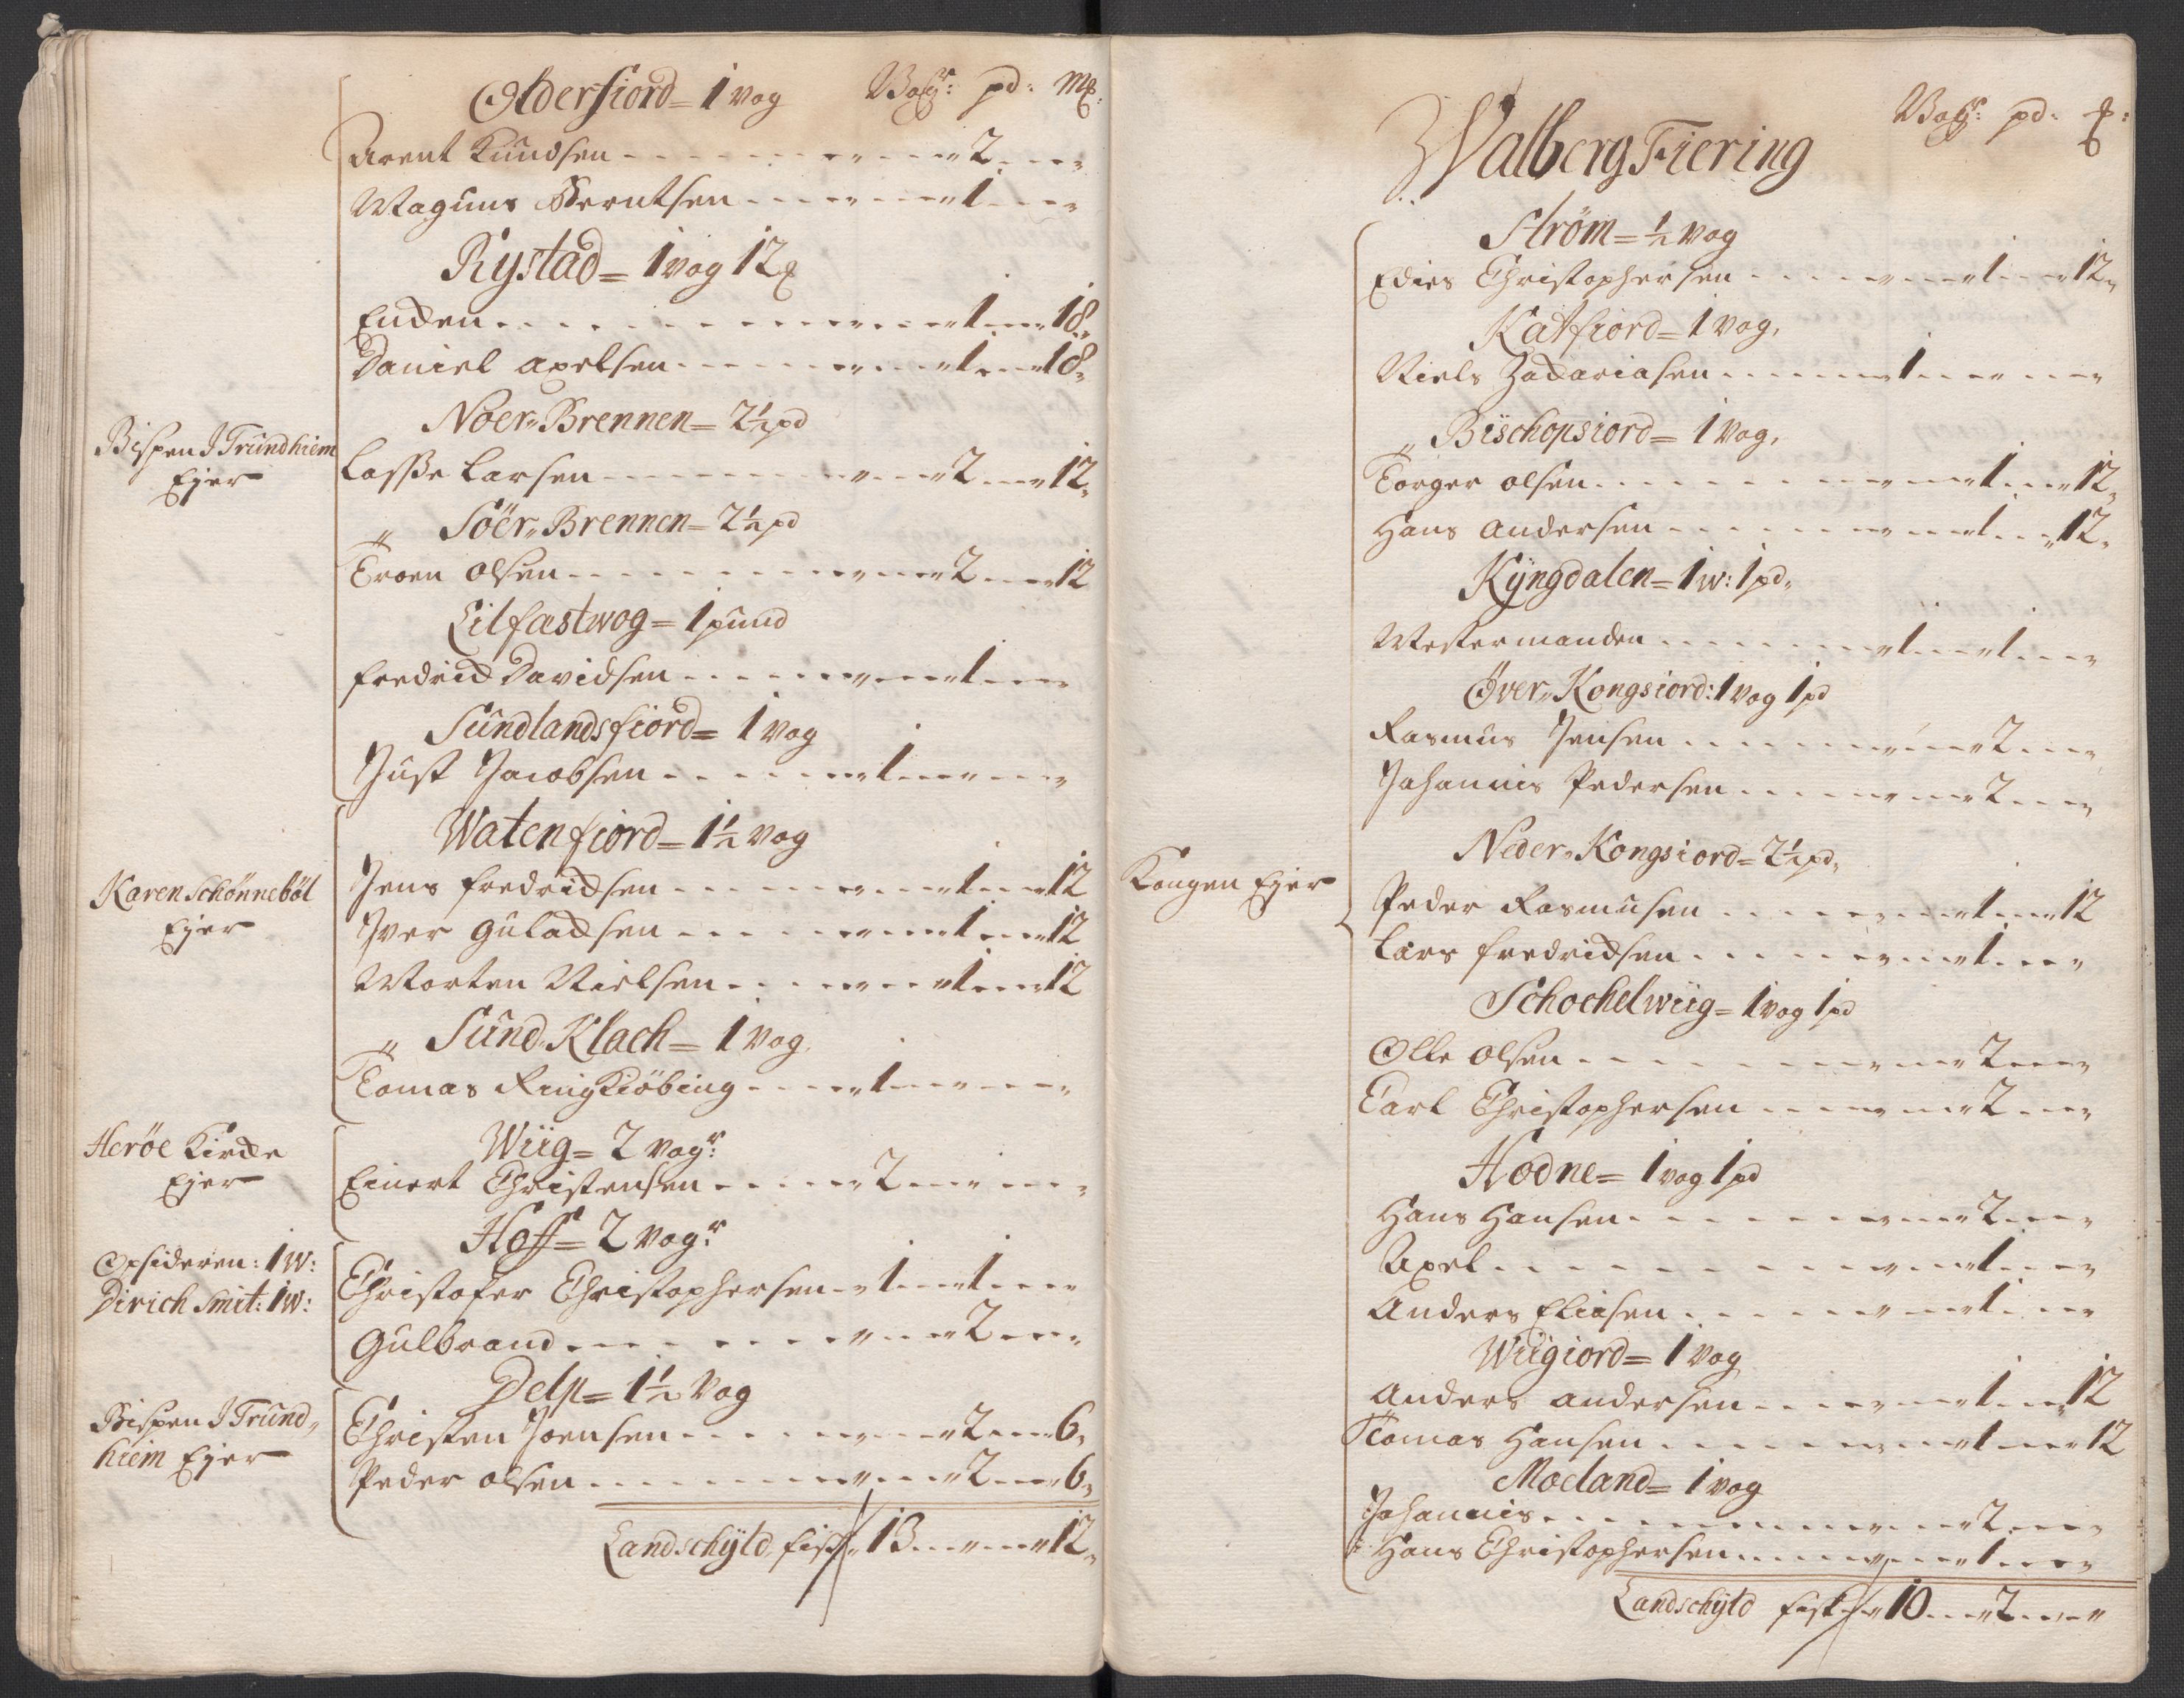 Olderfiord = 1 vog Vogr: pd: mk:
Arent Knudsen - - - - 2 - - -
Magnus Berntsen - - - - 1 - - -
Rystad = 1 vog 12
Encken - - - - 1 - - - 18
Daniel Axelsen - - - - 1 - - - 18
Noer-Brennen = 2½ pd
Bispen I Trundhiem
Ejer
Lasse Larsen - - - - 2 - - - 12
Söer-Brennen = 2½ pd
Troen Olsen - - - - 2 - - - 12
Eilfastwog = 1 pund
Fredrick Davidsen - - - - 1 - - -
Sundlandsfiord = 1 vog
Just Jacobsen - - - - 1 - - -
Watenfiord = 1½ vog
Karen Schønnebøl
Ejer
Jens Fredricksen - - - - 1 - - - 12
Iver Gulacksen - - - - 1 - - - 12
Morten Nielsen - - - - 1 - - - 12
Sund Klach = 1 vog
Tomas Ringkiöbing - - - - 1 - - -
Herøe Kircke
Ejer
Wiig = 2 vogr:
Einert Christensen - - - - 2 - - -
Hoff = 2 vogr:
Opsideren: 1 W:
Dirich Smit: 1 W:
Christofer Christophersen - 1 - - 1 - - -
Gulbrand - - - - 2 - - -
Delp = 1½ vog
Bispen I Trund,,
hiem Ejer
Christen Joensen - - - - 2 - - - 6
Peder Olsen - - - - 2 - - - 6
Landschyld, fisk 13 - - - - 12
Vogr: pd:
Walberg Fiering
Strøm = ½ vog
Edies Christophersen - - - - 1 - - - 12
Katfiord = 1 vog,
Niels Zackariasen - - - - 1 - - -
Bischopsiord = 1 vog,
Torger Olsen - - - - 1 - - - 12
Hans Andersen - - - - 1 - - - 12
Kyngdalen = 1 w: 1 pd
Mestermanden - - - - 1 - - 1 - - -
Över,, Kongsiord: 1 vog 1 pd
Rasmus Jensen - - - - 2 - - -
Johannis Pedersen - - - - 2 - - -
Neder,, Kongsiord = 2½ pd,
Kongen Ejer
Peder Rasmusen - - - - 1 - - - 12
Lars Fredricksen - - - - 1 - - -
Schochelwiig = 1 vog 1 pd
Olle Olsen - - - - 2 - - -
Carl Christophersen - - - - 2 - - -
Hodne = 1 vog 1 pd
Hans Hansen - - - - 2 - - -
Axel - - - - 1 - - -
Anders Eliasen - - - - 1 - - -
Wiigiord = 1 vog
Anders Andersen - - - - 1 - - - 12
Tomas Hansen - - - - 1 - - - 12
Moeland = 1 vog
Johannis - - - - 2 - - -
Hans Christophersen - - - - 1 - - -
Landschyld fisk 10 - - 2 - - -